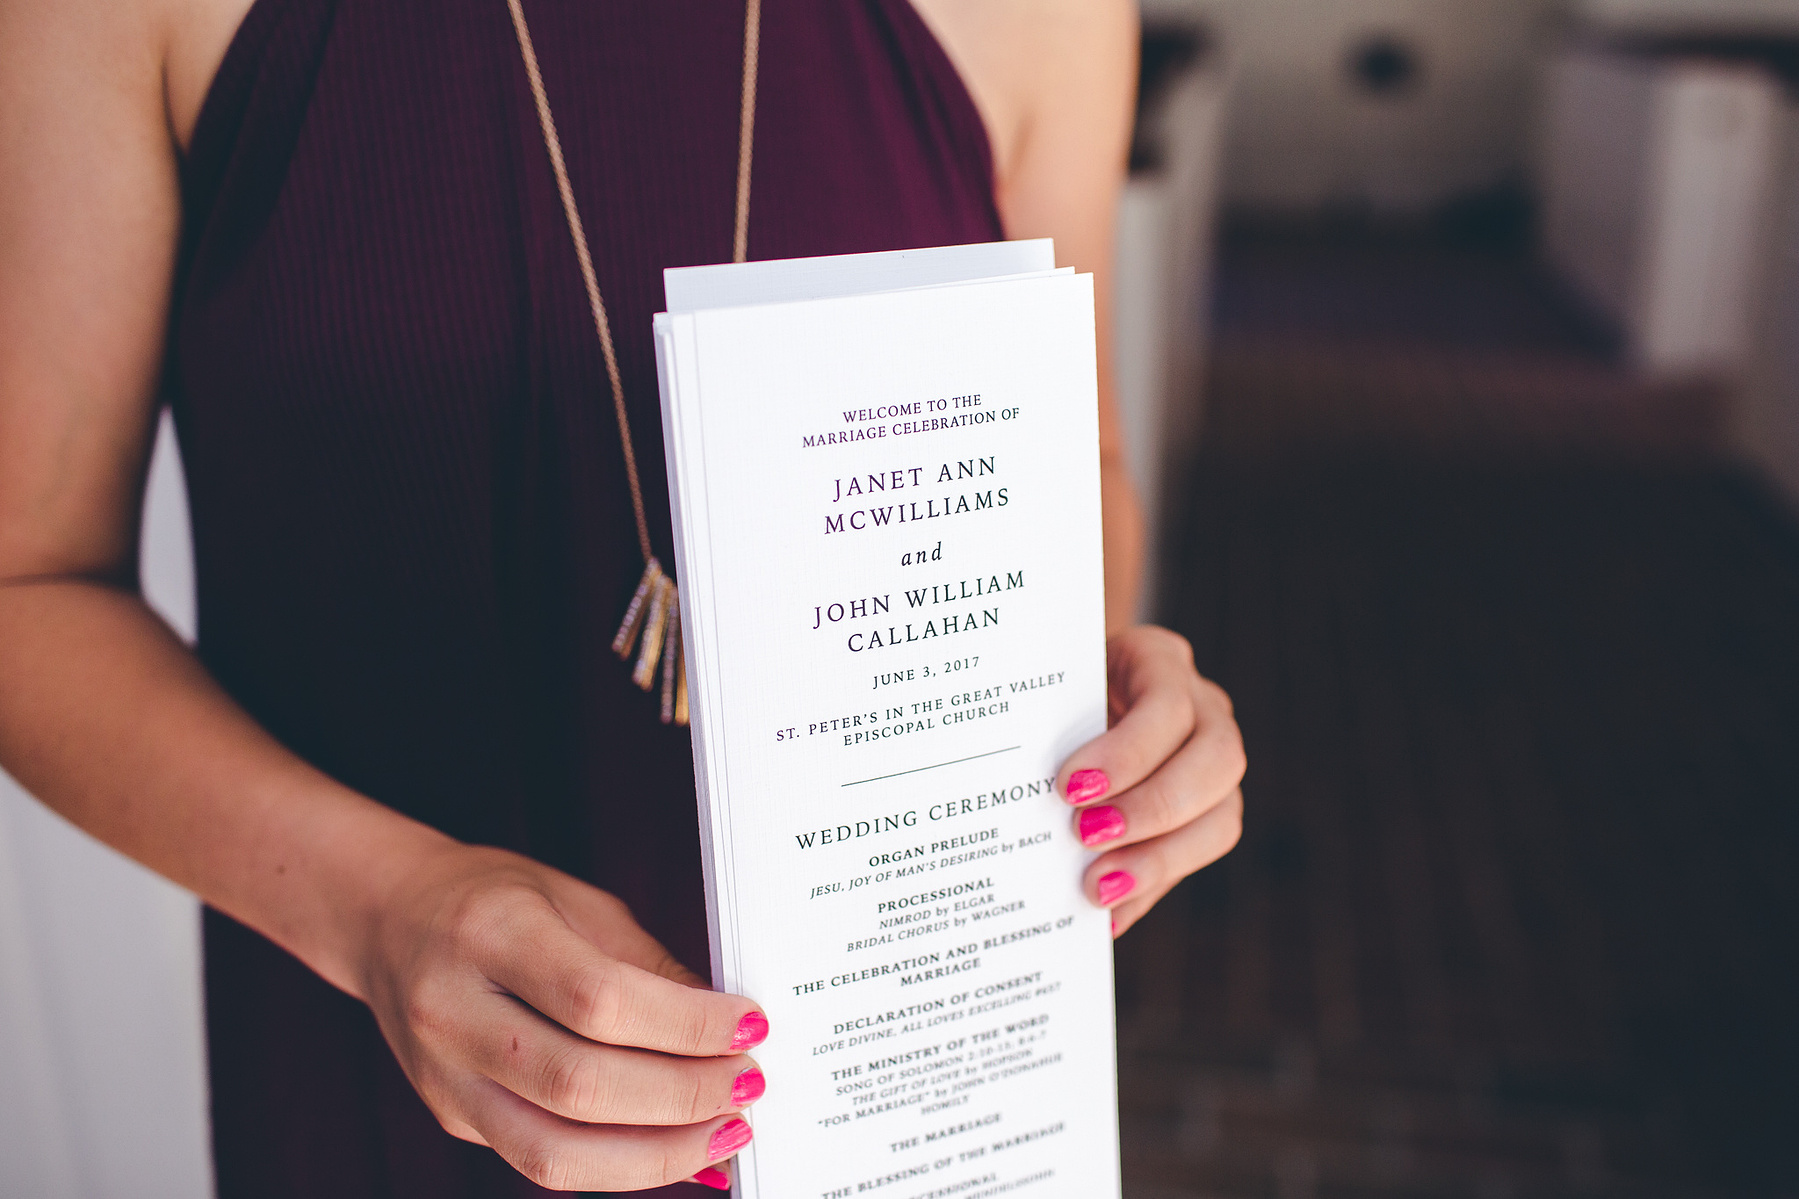 WELCOME TO THE
MARRIAGE CELEBRATION OF
JANET ANN
MCWILLIAMS
and
JOHN WILLIAM
CALLAHAN
JUNE 3, 2017
ST. PETER'S IN THE GREAT VALLEY
EPISCOPAL CHURCH
WEDDING CEREMONY
ORGAN PRELUDE
JESU, JOY OF MAN'S DESIRING by BACH
PROCESSIONAL
NIMROD by ELGAR
BRIDAL CHORUS by WAGNER
THE CELEBRATION AND BLESSING OF
MARRIAGE
DECLARATION OF CONSENT
LOVE DIVINE, ALL LOVES EXCELLING #657
THE MINISTRY OF THE WORD
SONG OF SOLOMON 2:10-13; 8:6-7
THE GIFT OF LOVE by HOPSON
"FOR MARRIAGE" by JOHN O'DONAHUE
HOMILY
THE MARRIAGE
THE BLESSING OF THE MARRIAGE